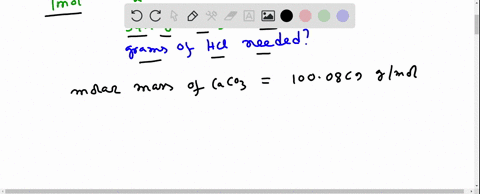 1mol
grams of HCl needed?
molar mass of CaCO3 = 100.0869 g/mol